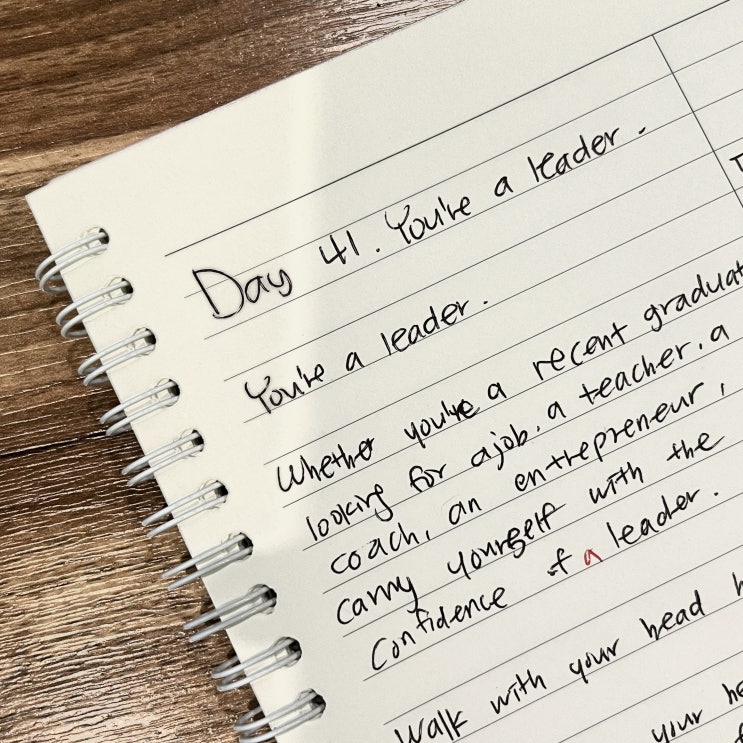 Day 41. You're a leader.
You're a leader.
Whether you're a recent graduat
looking for a job. a teacher. a
coach, an entrepreneur,
carry yourself with the
confidence of a leader.
Walk with your head h
your he